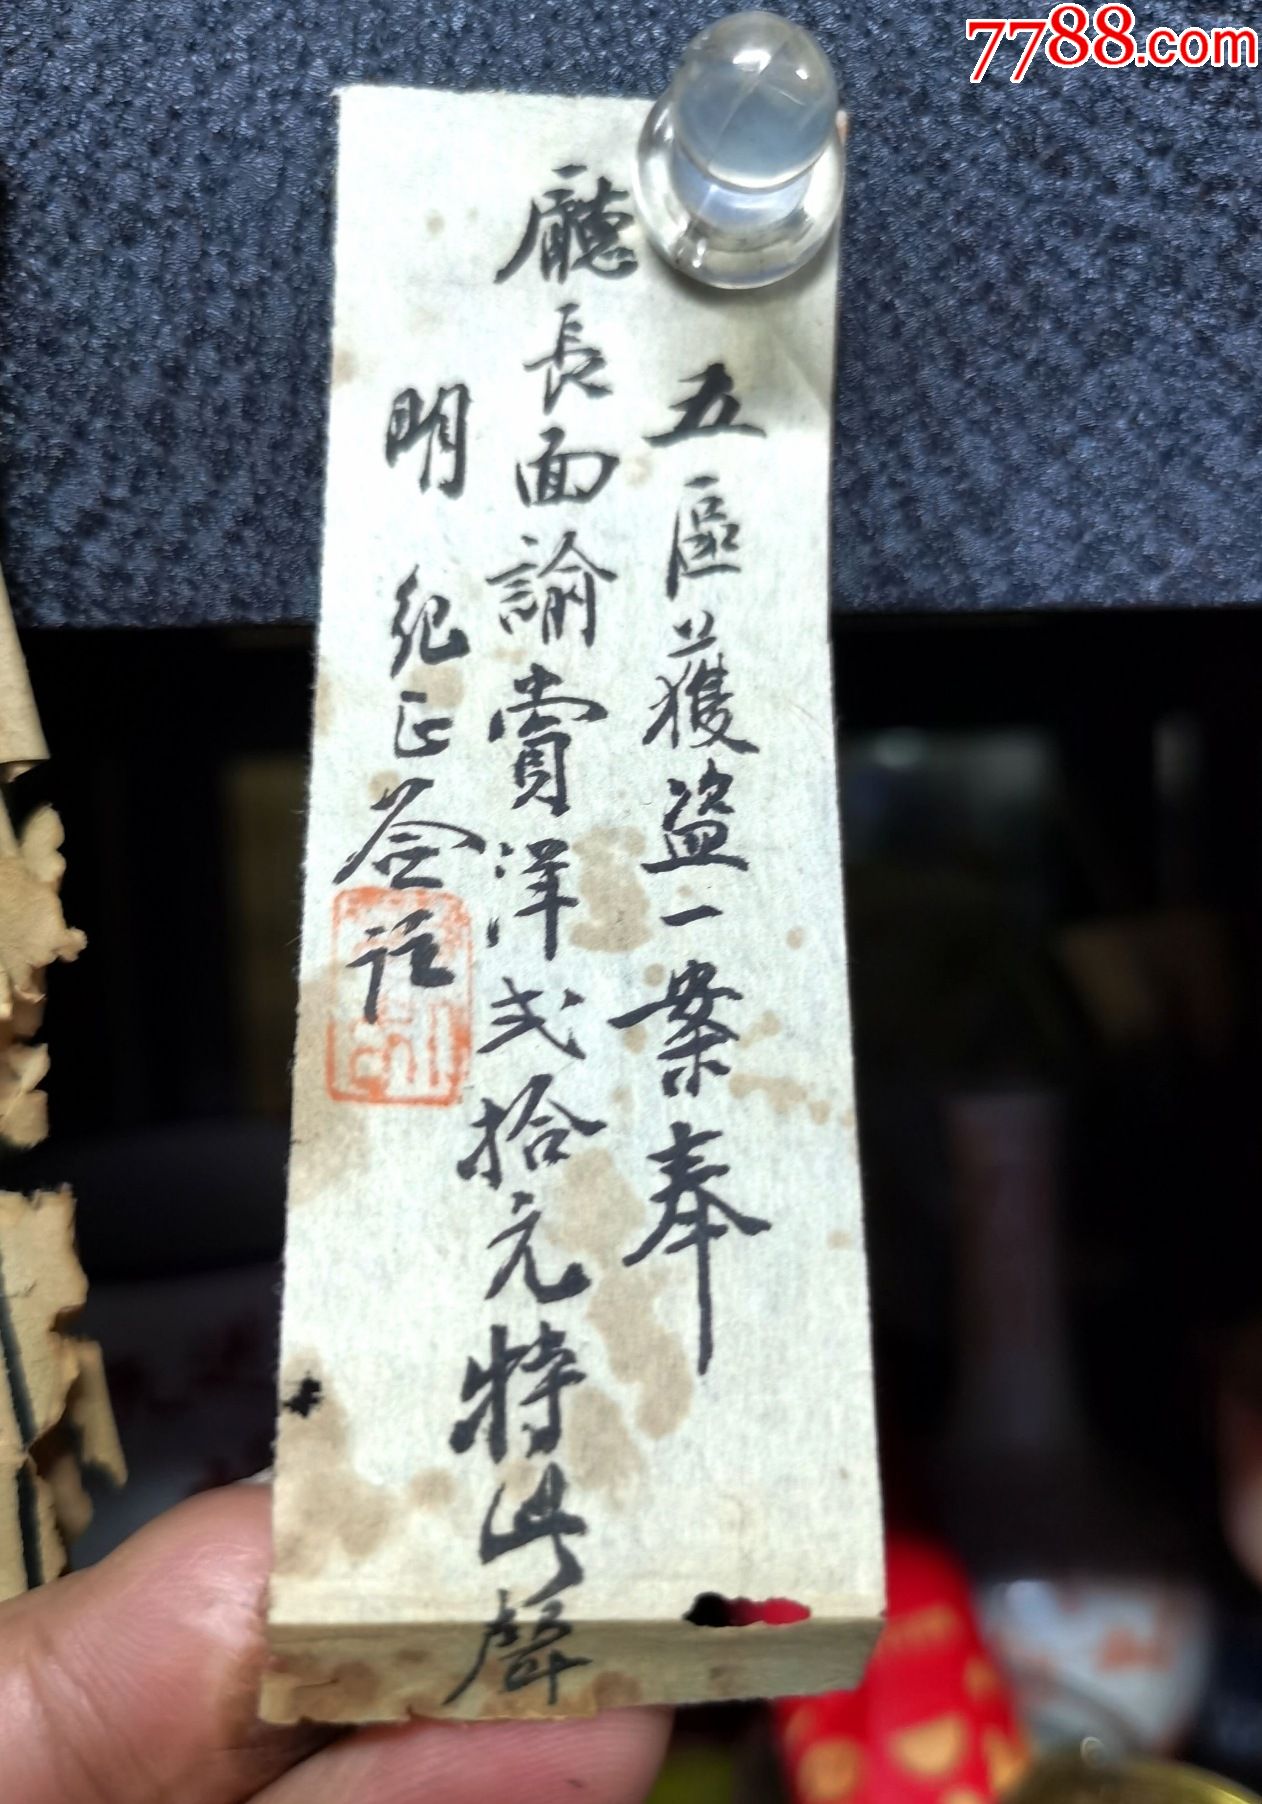 7788.com
五區獲盜一案奉
廳長面諭賞洋弍拾元特此聲
明 紀正签註